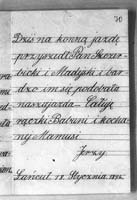 70
Dziś na konną jazdę
przyszedł Pan Skrzer-
bicki i Madyski i bar-
dzo im się podobała
nasza jazda. Całuję
rączki Babuni i kocha-
nej Mamusi
Jerzy
Łańcut 18 Stycznia 1912